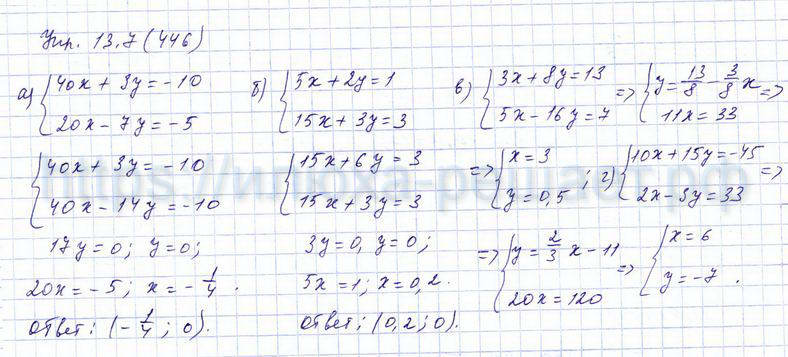 Упр. 13.7 (446)
а) { 40x + 3y = -10
20x - 7y = -5
{ 40x + 3y = -10
40x - 14y = -10
17y = 0; y = 0;
20x = -5; x = -1/4.
ответ: (-1/4; 0).
б) { 5x + 2y = 1
15x + 3y = 3
{ 15x + 6y = 3
15x + 3y = 3
3y = 0, y = 0;
5x = 1; x = 0,2.
ответ: (0,2; 0).
в) { 3x + 8y = 13 => { y = 13/8 - 3/8 x =>
5x - 16y = 7 11x = 33
=> { x = 3
y = 0,5 ;
г) { 10x + 15y = -45 =>
2x - 3y = 33
=> { y = 2/3 x - 11 => { x = 6
20x = 120 y = -7 .